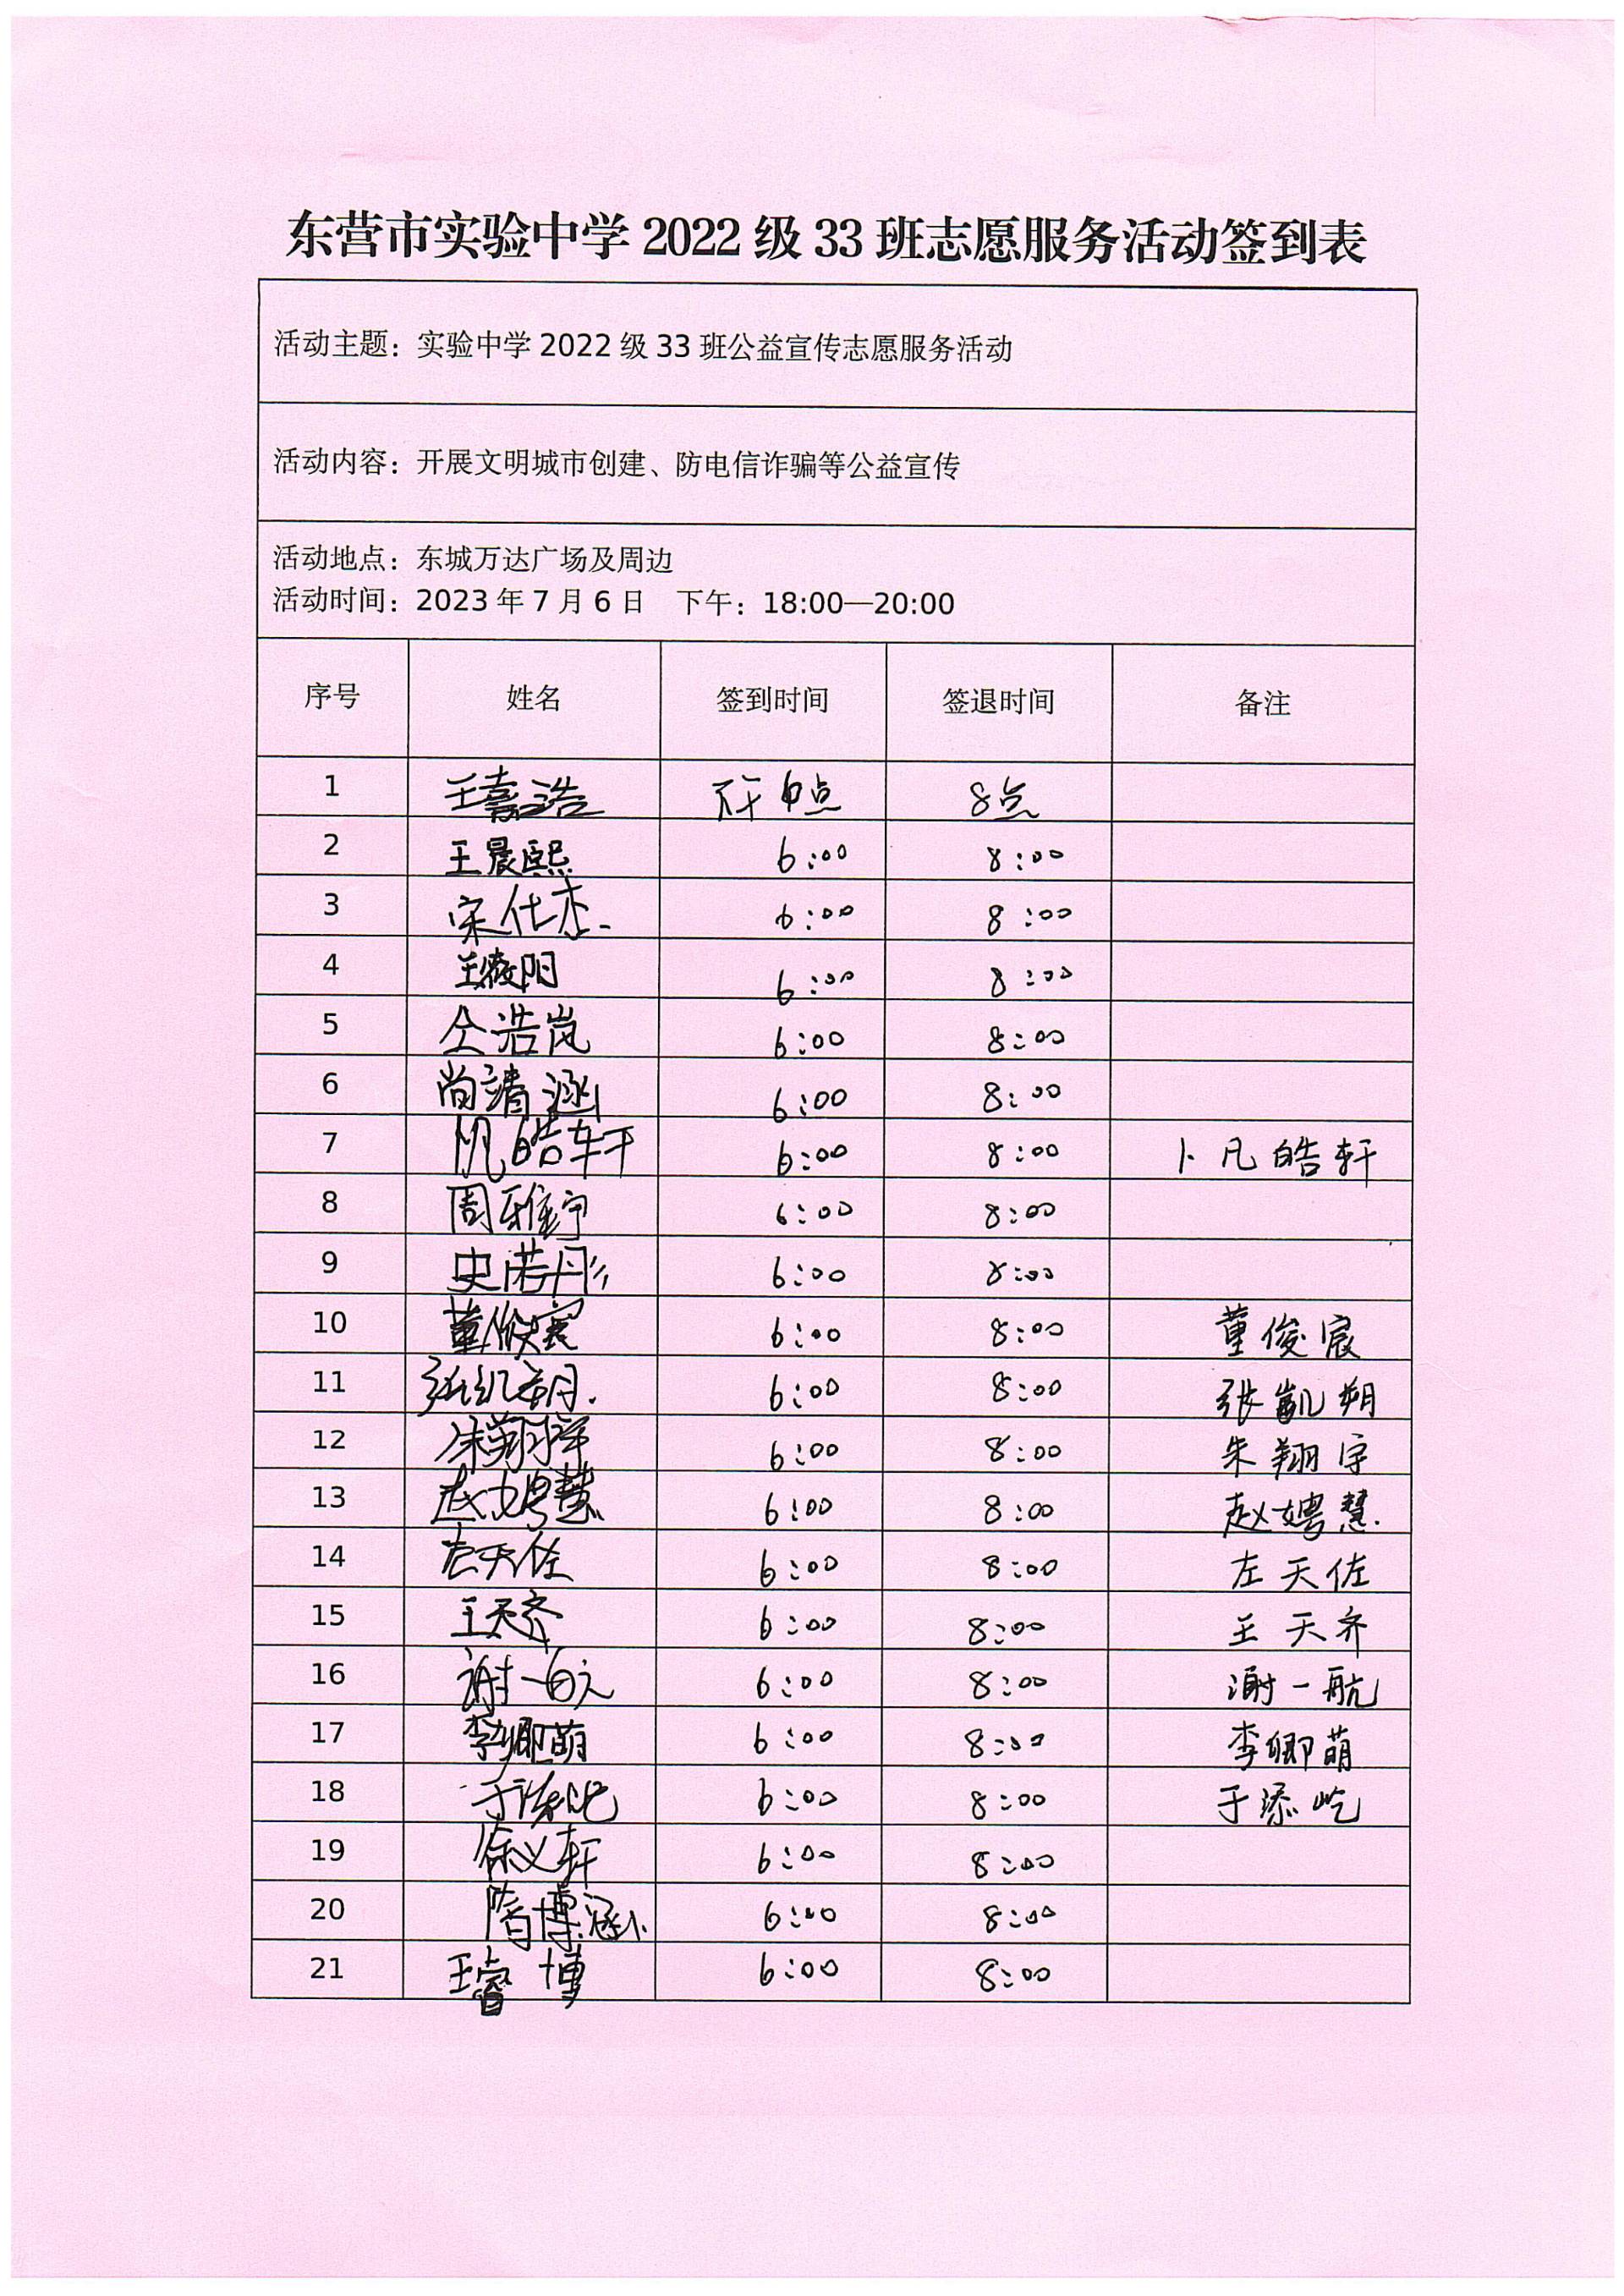 东营市实验中学 2022 级 33 班志愿服务活动签到表
活动主题：实验中学 2022 级 33 班公益宣传志愿服务活动
活动内容：开展文明城市创建、防电信诈骗等公益宣传
活动地点：东城万达广场及周边
活动时间：2023 年 7 月 6 日 下午：18:00—20:00
序号 姓名 签到时间 签退时间 备注
1 王嘉浩 下午6点 8点
2 王晨熙 6:00 8:00
3 宋仕杰 6:00 8:00
4 王 阳 6:00 8:00
5 仝浩岚 6:00 8:00
6 尚靖涵 6:00 8:00
7 卜凡皓轩 6:00 8:00 卜凡皓轩
8 周雅宁 6:00 8:00
9 史诺彤 6:00 8:00
10 董俊宸 6:00 8:00 董俊宸
11 张凯朔. 6:00 8:00 张凯朔
12 朱翔宇 6:00 8:00 朱翔宇
13 赵娉慧 6:00 8:00 赵娉慧.
14 左天佐 6:00 8:00 左天佐
15 王天齐 6:00 8:00 王天齐
16 谢一航 6:00 8:00 谢一航
17 李卿萌 6:00 8:00 李卿萌
18 于添屹 6:00 8:00 于添屹
19 徐义轩 6:00 8:00
20 隋博涵 6:00 8:00
21 王睿博 6:00 8:00